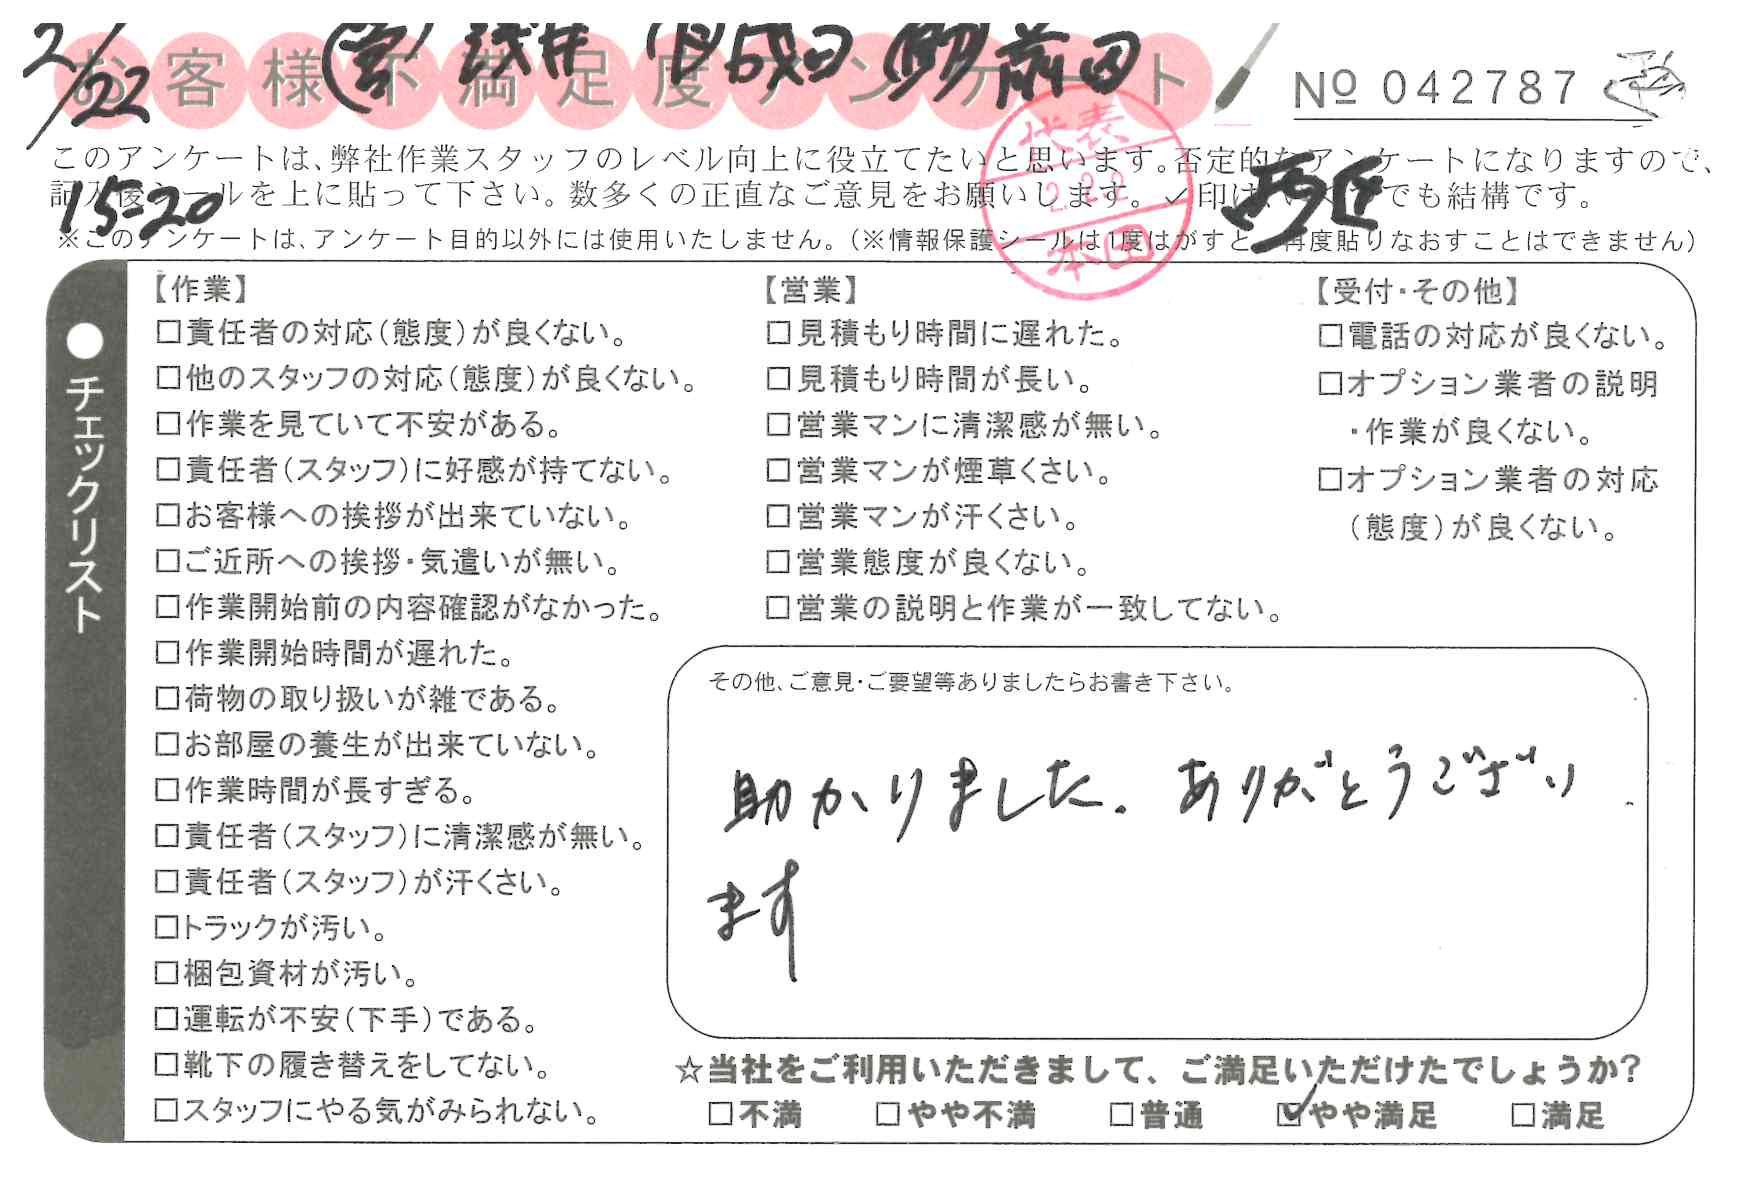 2/22 (営) 浅井 成田 前田
お客様不満足度アンケート
№ 042787
このアンケートは、弊社作業スタッフのレベル向上に役立てたいと思います。否定的なアンケートになりますので、
記入後シールを上に貼って下さい。数多くの正直なご意見をお願いします。✓印は、いくつでも結構です。
15-20
※このアンケートは、アンケート目的以外には使用いたしません。(※情報保護シールは1度はがすと、再度貼りなおすことはできません)
代表
2.2.2
本田
●チェックリスト
【作業】
□責任者の対応(態度)が良くない。
□他のスタッフの対応(態度)が良くない。
□作業を見ていて不安がある。
□責任者(スタッフ)に好感が持てない。
□お客様への挨拶が出来ていない。
□ご近所への挨拶・気遣いが無い。
□作業開始前の内容確認がなかった。
□作業開始時間が遅れた。
□荷物の取り扱いが雑である。
□お部屋の養生が出来ていない。
□作業時間が長すぎる。
□責任者(スタッフ)に清潔感が無い。
□責任者(スタッフ)が汗くさい。
□トラックが汚い。
□梱包資材が汚い。
□運転が不安(下手)である。
□靴下の履き替えをしてない。
□スタッフにやる気がみられない。
【営業】
□見積もり時間に遅れた。
□見積もり時間が長い。
□営業マンに清潔感が無い。
□営業マンが煙草くさい。
□営業マンが汗くさい。
□営業態度が良くない。
□営業の説明と作業が一致してない。
【受付・その他】
□電話の対応が良くない。
□オプション業者の説明
・作業が良くない。
□オプション業者の対応
(態度)が良くない。
その他、ご意見・ご要望等ありましたらお書き下さい。
助かりました。ありがとうござい
ます
☆当社をご利用いただきまして、ご満足いただけたでしょうか?
□不満 □やや不満 □普通 ☑やや満足 □満足